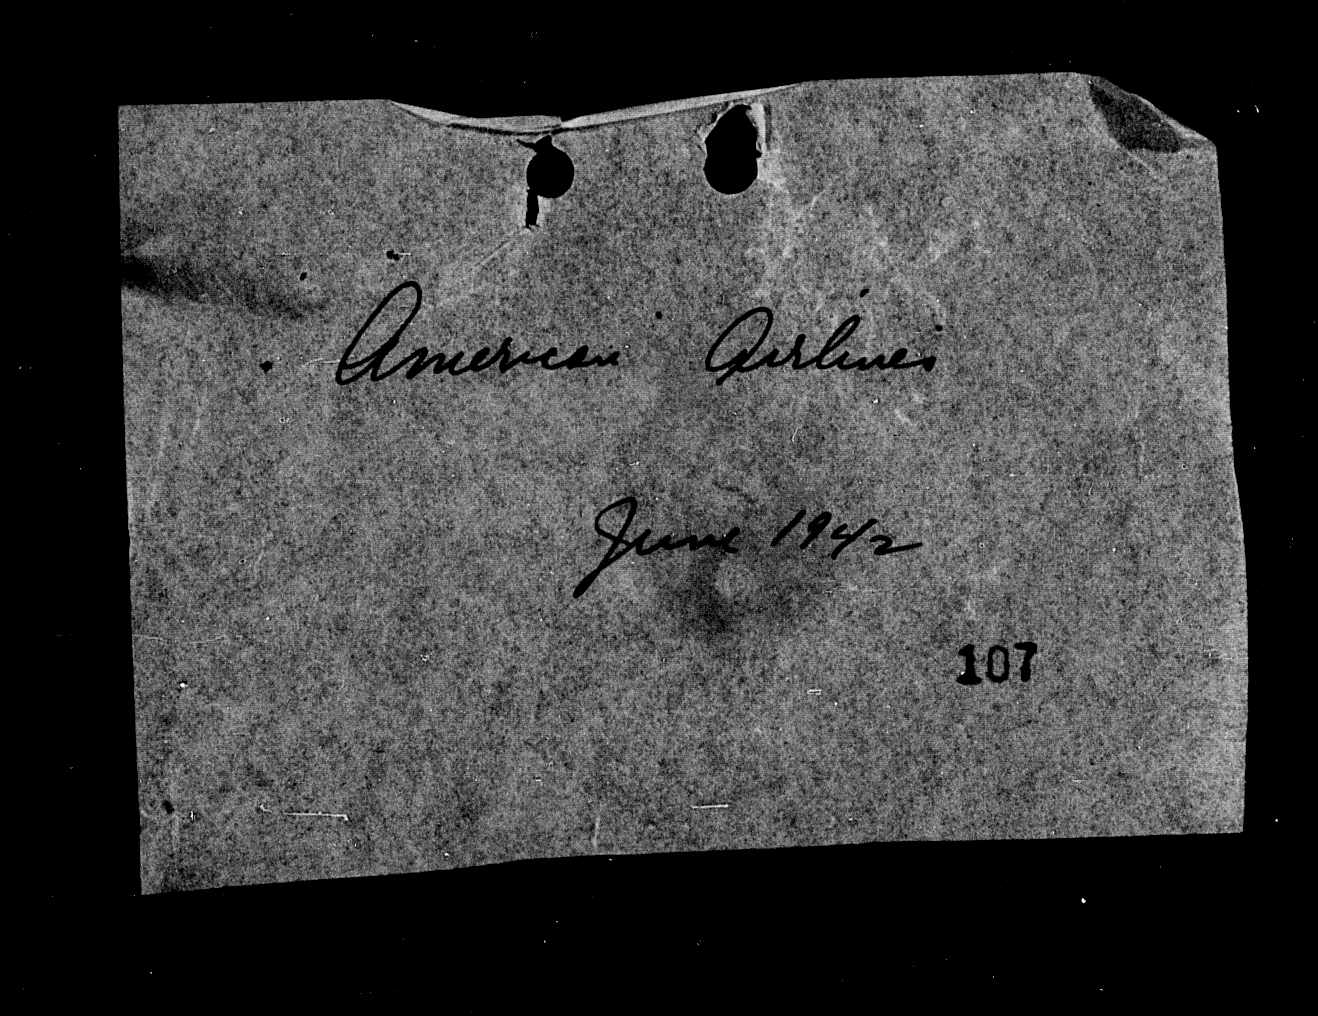 American Airlines
June 1942
107